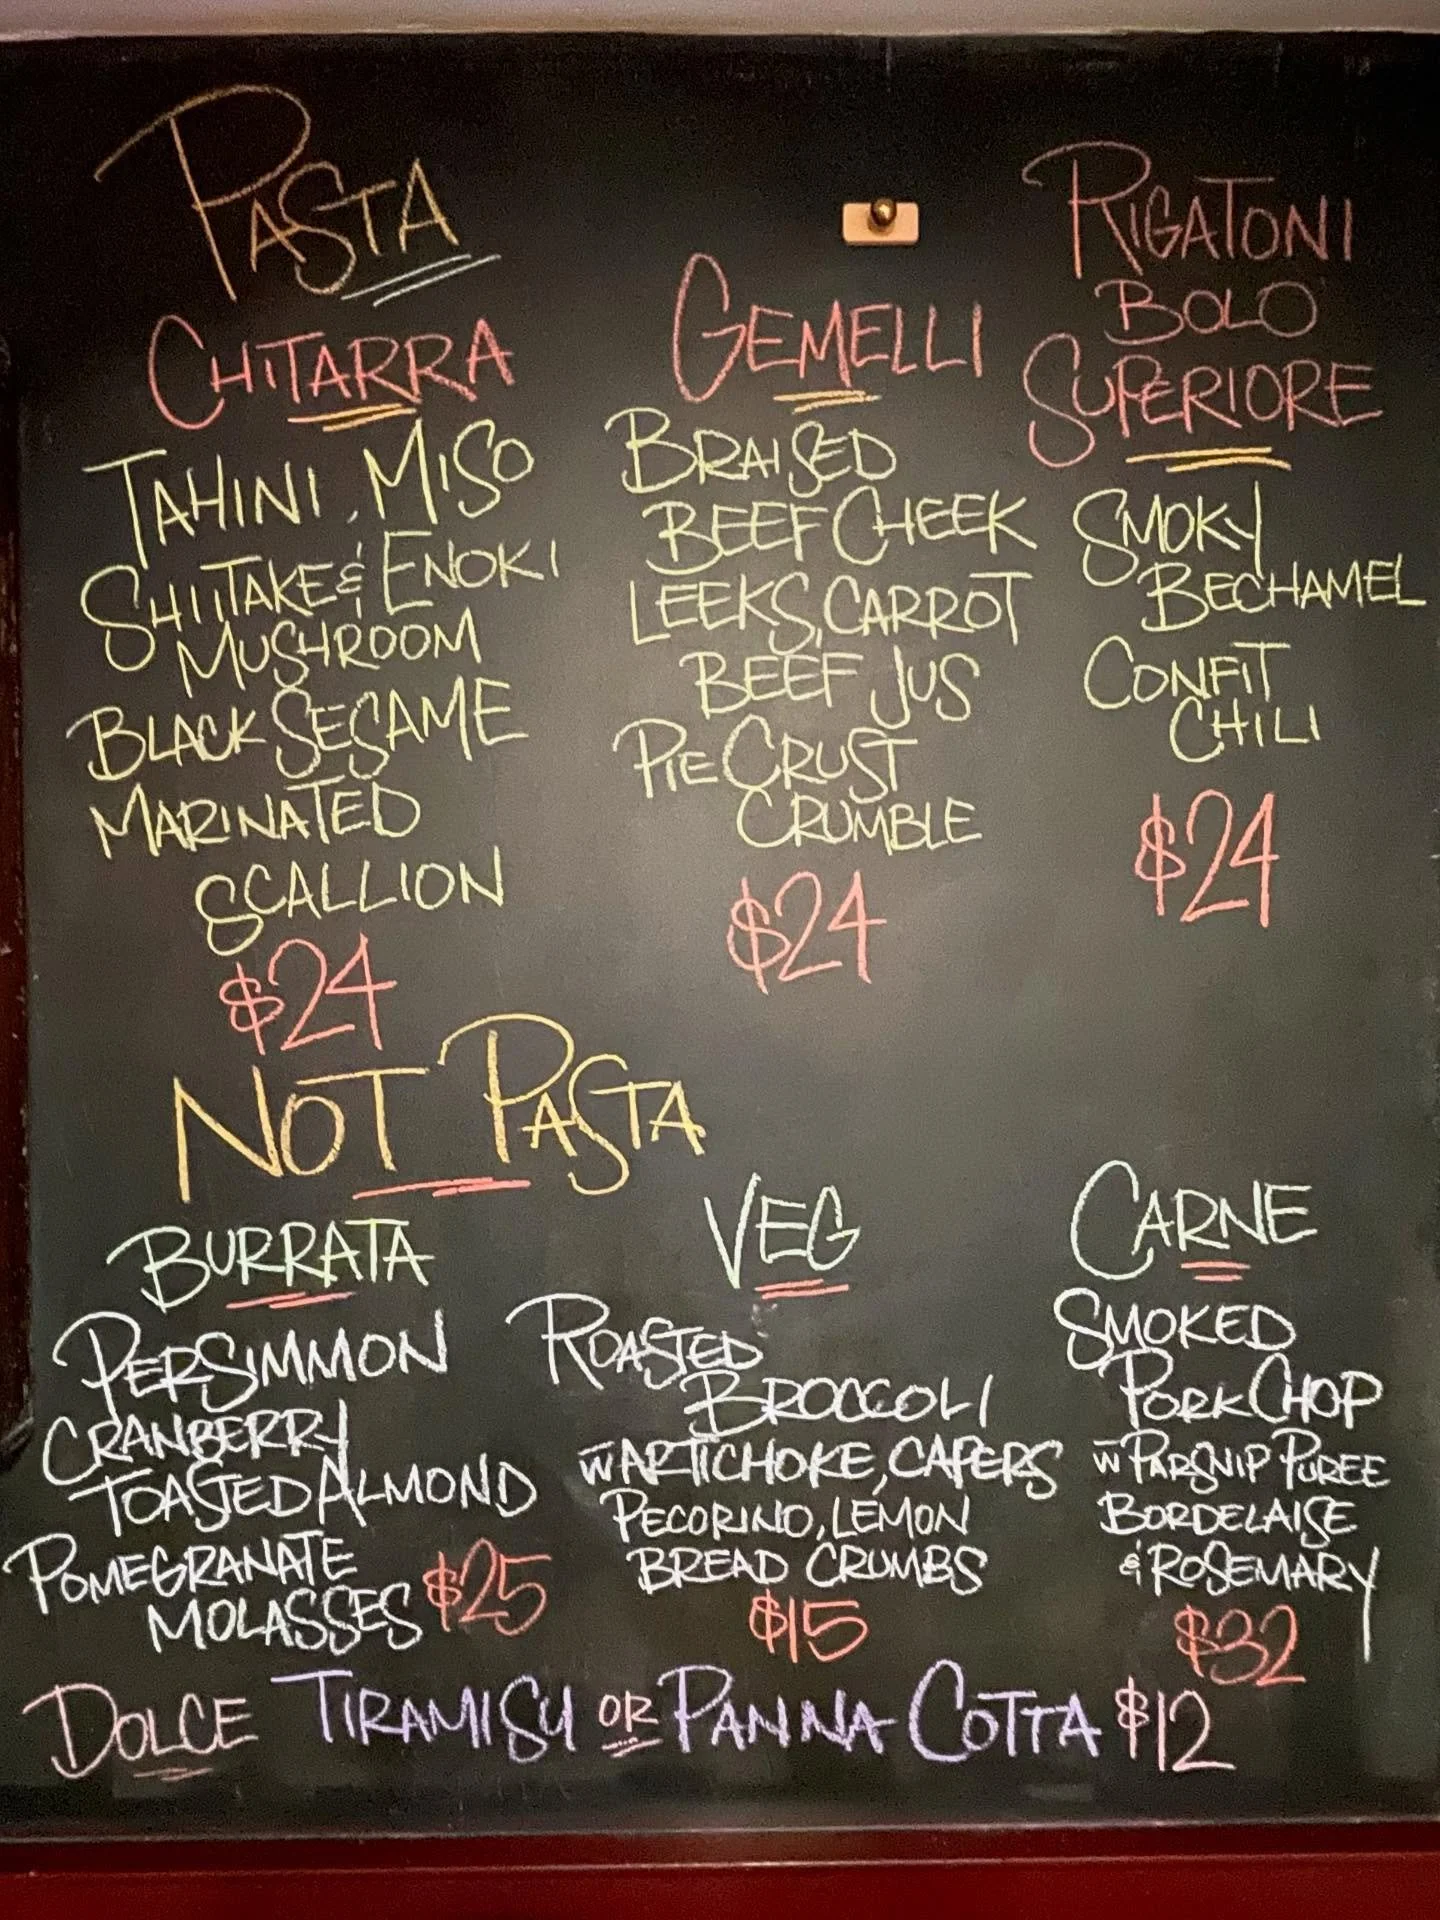 PASTA
CHITARRA
TAHINI, MISO
SHIITAKE & ENOKI
MUSHROOM
BLACK SESAME
MARINATED
SCALLION
$24
GEMELLI
BRAISED
BEEF CHEEK
LEEKS, CARROT
BEEF JUS
PIE CRUST
CRUMBLE
$24
RIGATONI
BOLO
SUPERIORE
SMOKY
BECHAMEL
CONFIT
CHILI
$24
NOT PASTA
BURRATA
PERSIMMON
CRANBERRY
TOASTED ALMOND
POMEGRANATE
MOLASSES $25
VEG
ROASTED
BROCCOLI
W ARTICHOKE, CAPERS
PECORINO, LEMON
BREAD CRUMBS
$15
CARNE
SMOKED
PORK CHOP
W PARSNIP PUREE
BORDELAISE
& ROSEMARY
$32
DOLCE TIRAMISU OR PANNA COTTA $12